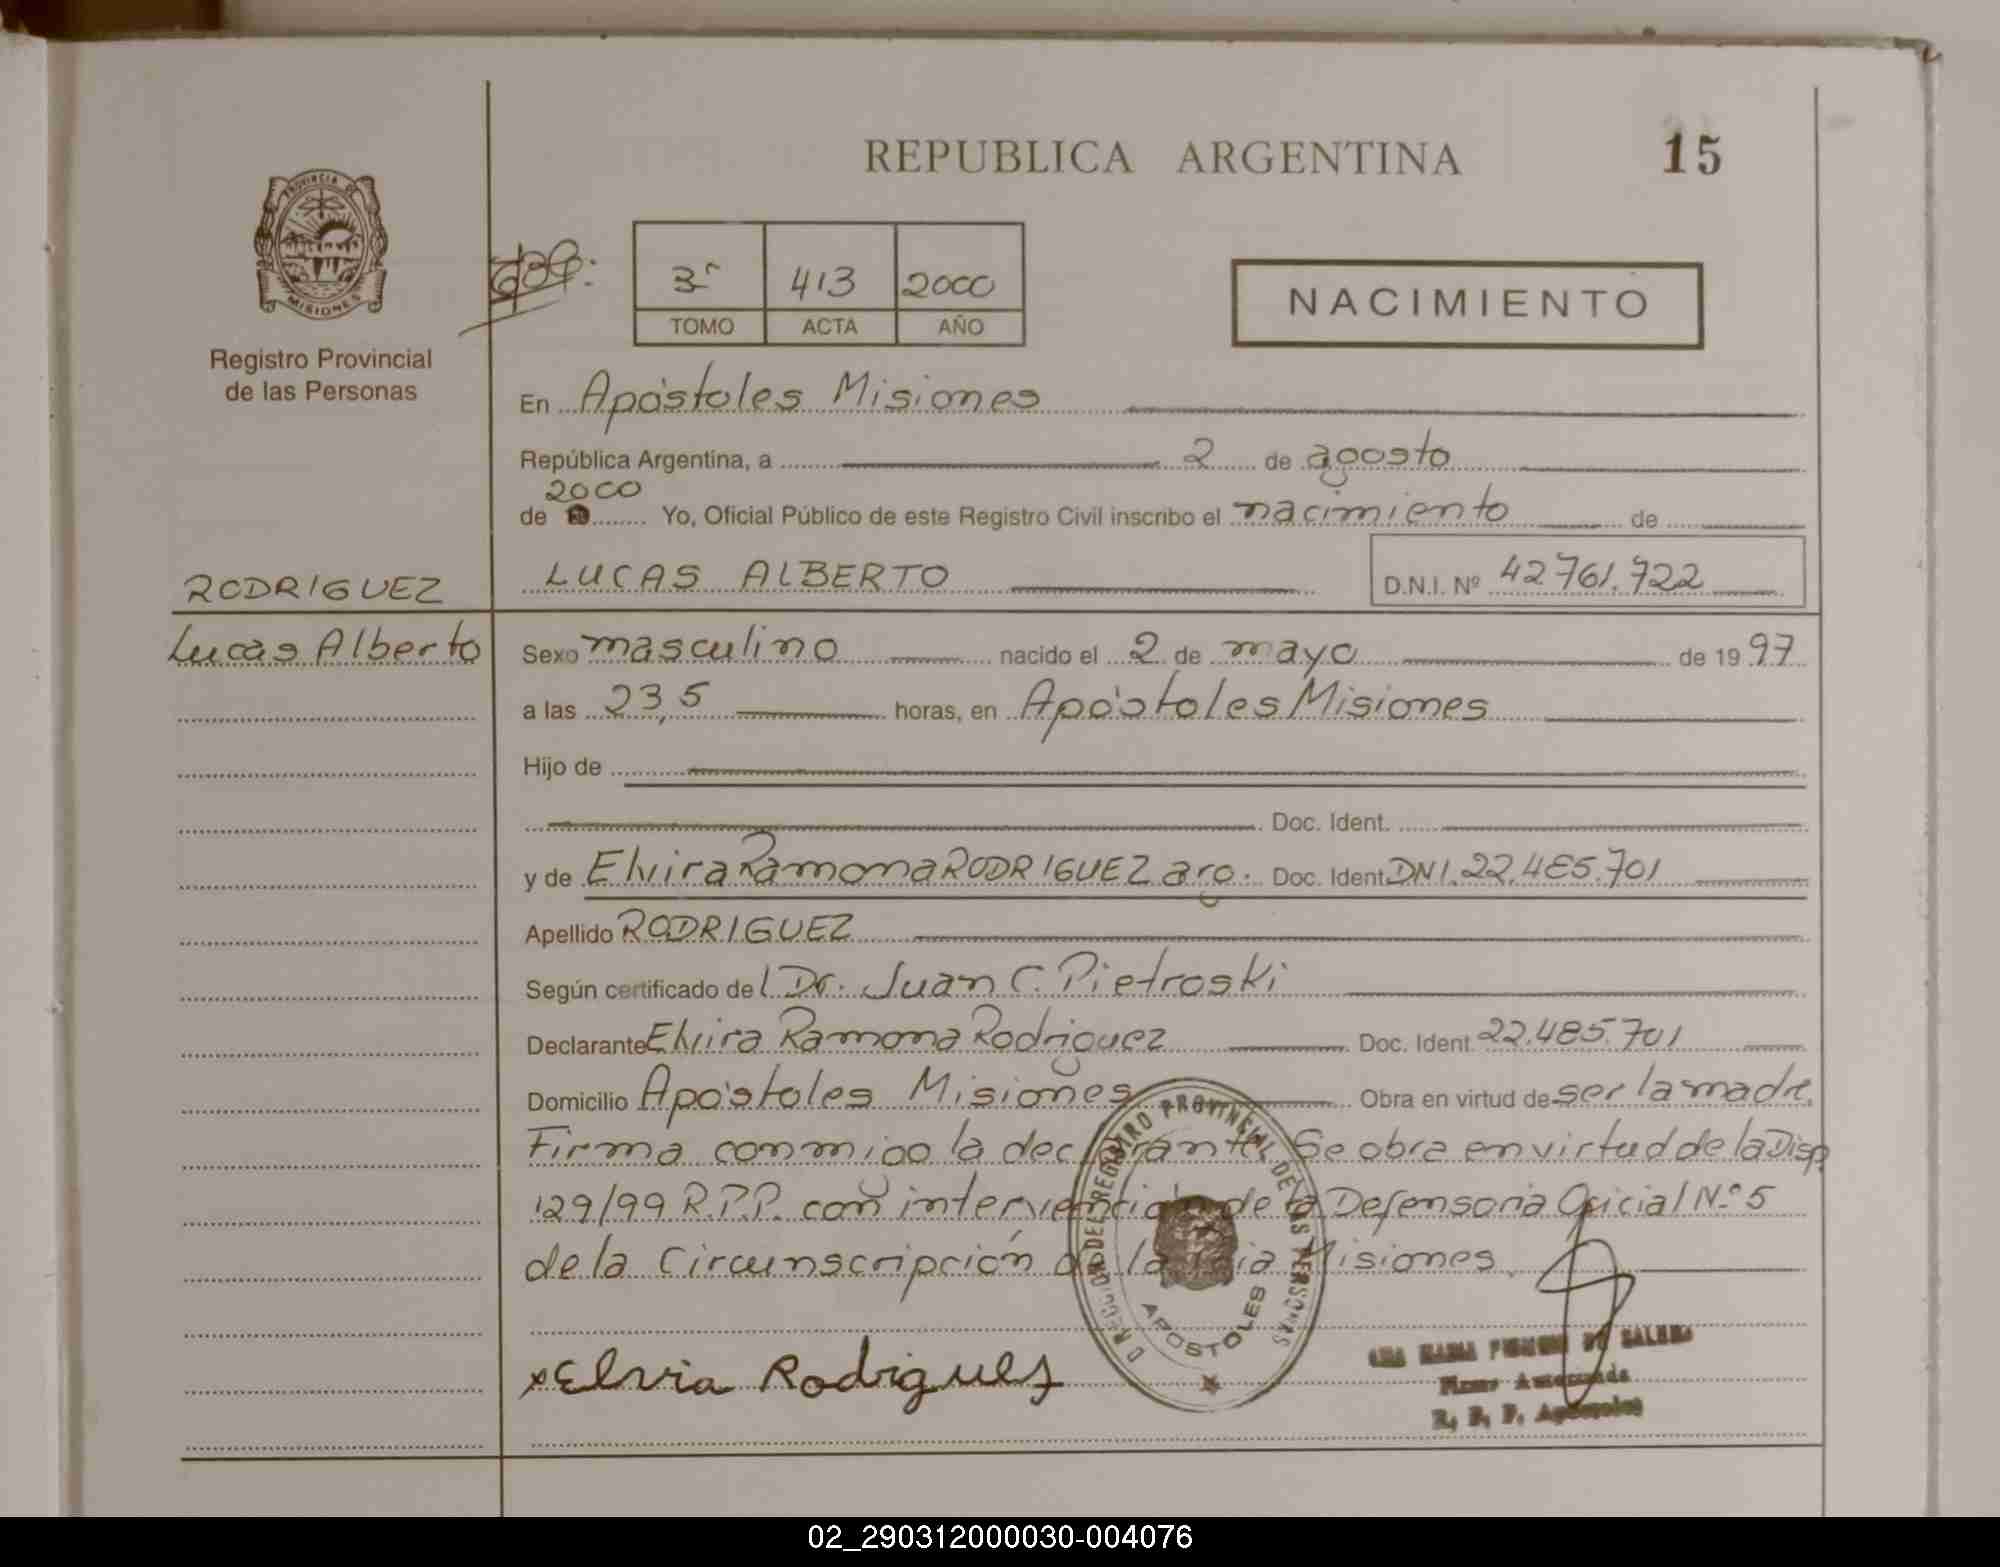 REPUBLICA ARGENTINA
15
PROVINCIA DE
MISIONES
Registro Provincial
de las Personas
3º 413 2000
TOMO ACTA AÑO
NACIMIENTO
En Apóstoles Misiones
República Argentina, a 2 de agosto
2000
de Yo, Oficial Público de este Registro Civil inscribo el nacimiento de
RODRIGUEZ
LUCAS ALBERTO D.N.I. Nº 42761.722
Lucas Alberto
Sexo masculino nacido el 2 de mayo de 1997
a las 23,5 horas, en Apóstoles Misiones
Hijo de
Doc. Ident.
y de Elvira Ramona RODRIGUEZ arg. Doc. Ident DNI.22.485.701
Apellido RODRIGUEZ
Según certificado del Dr. Juan C. Pietroski
Declarante Elvira Ramona Rodriguez Doc. Ident 22.485.701
Domicilio Apóstoles Misiones Obra en virtud de ser la madre.
Firma conmigo la declarante. Se obra en virtud de la Disp
129/99 R.P.P. con intervención de la Defensoria Oficial N.º 5
de la Circunscripción de la Misiones.
REGISTRO PROVINCIAL DE LAS PERSONAS
APOSTOLES
x Elvia Rodigues
MARIA DE
Firma Autorizada
R. P. P. Apóstoles
02_290312000030-004076